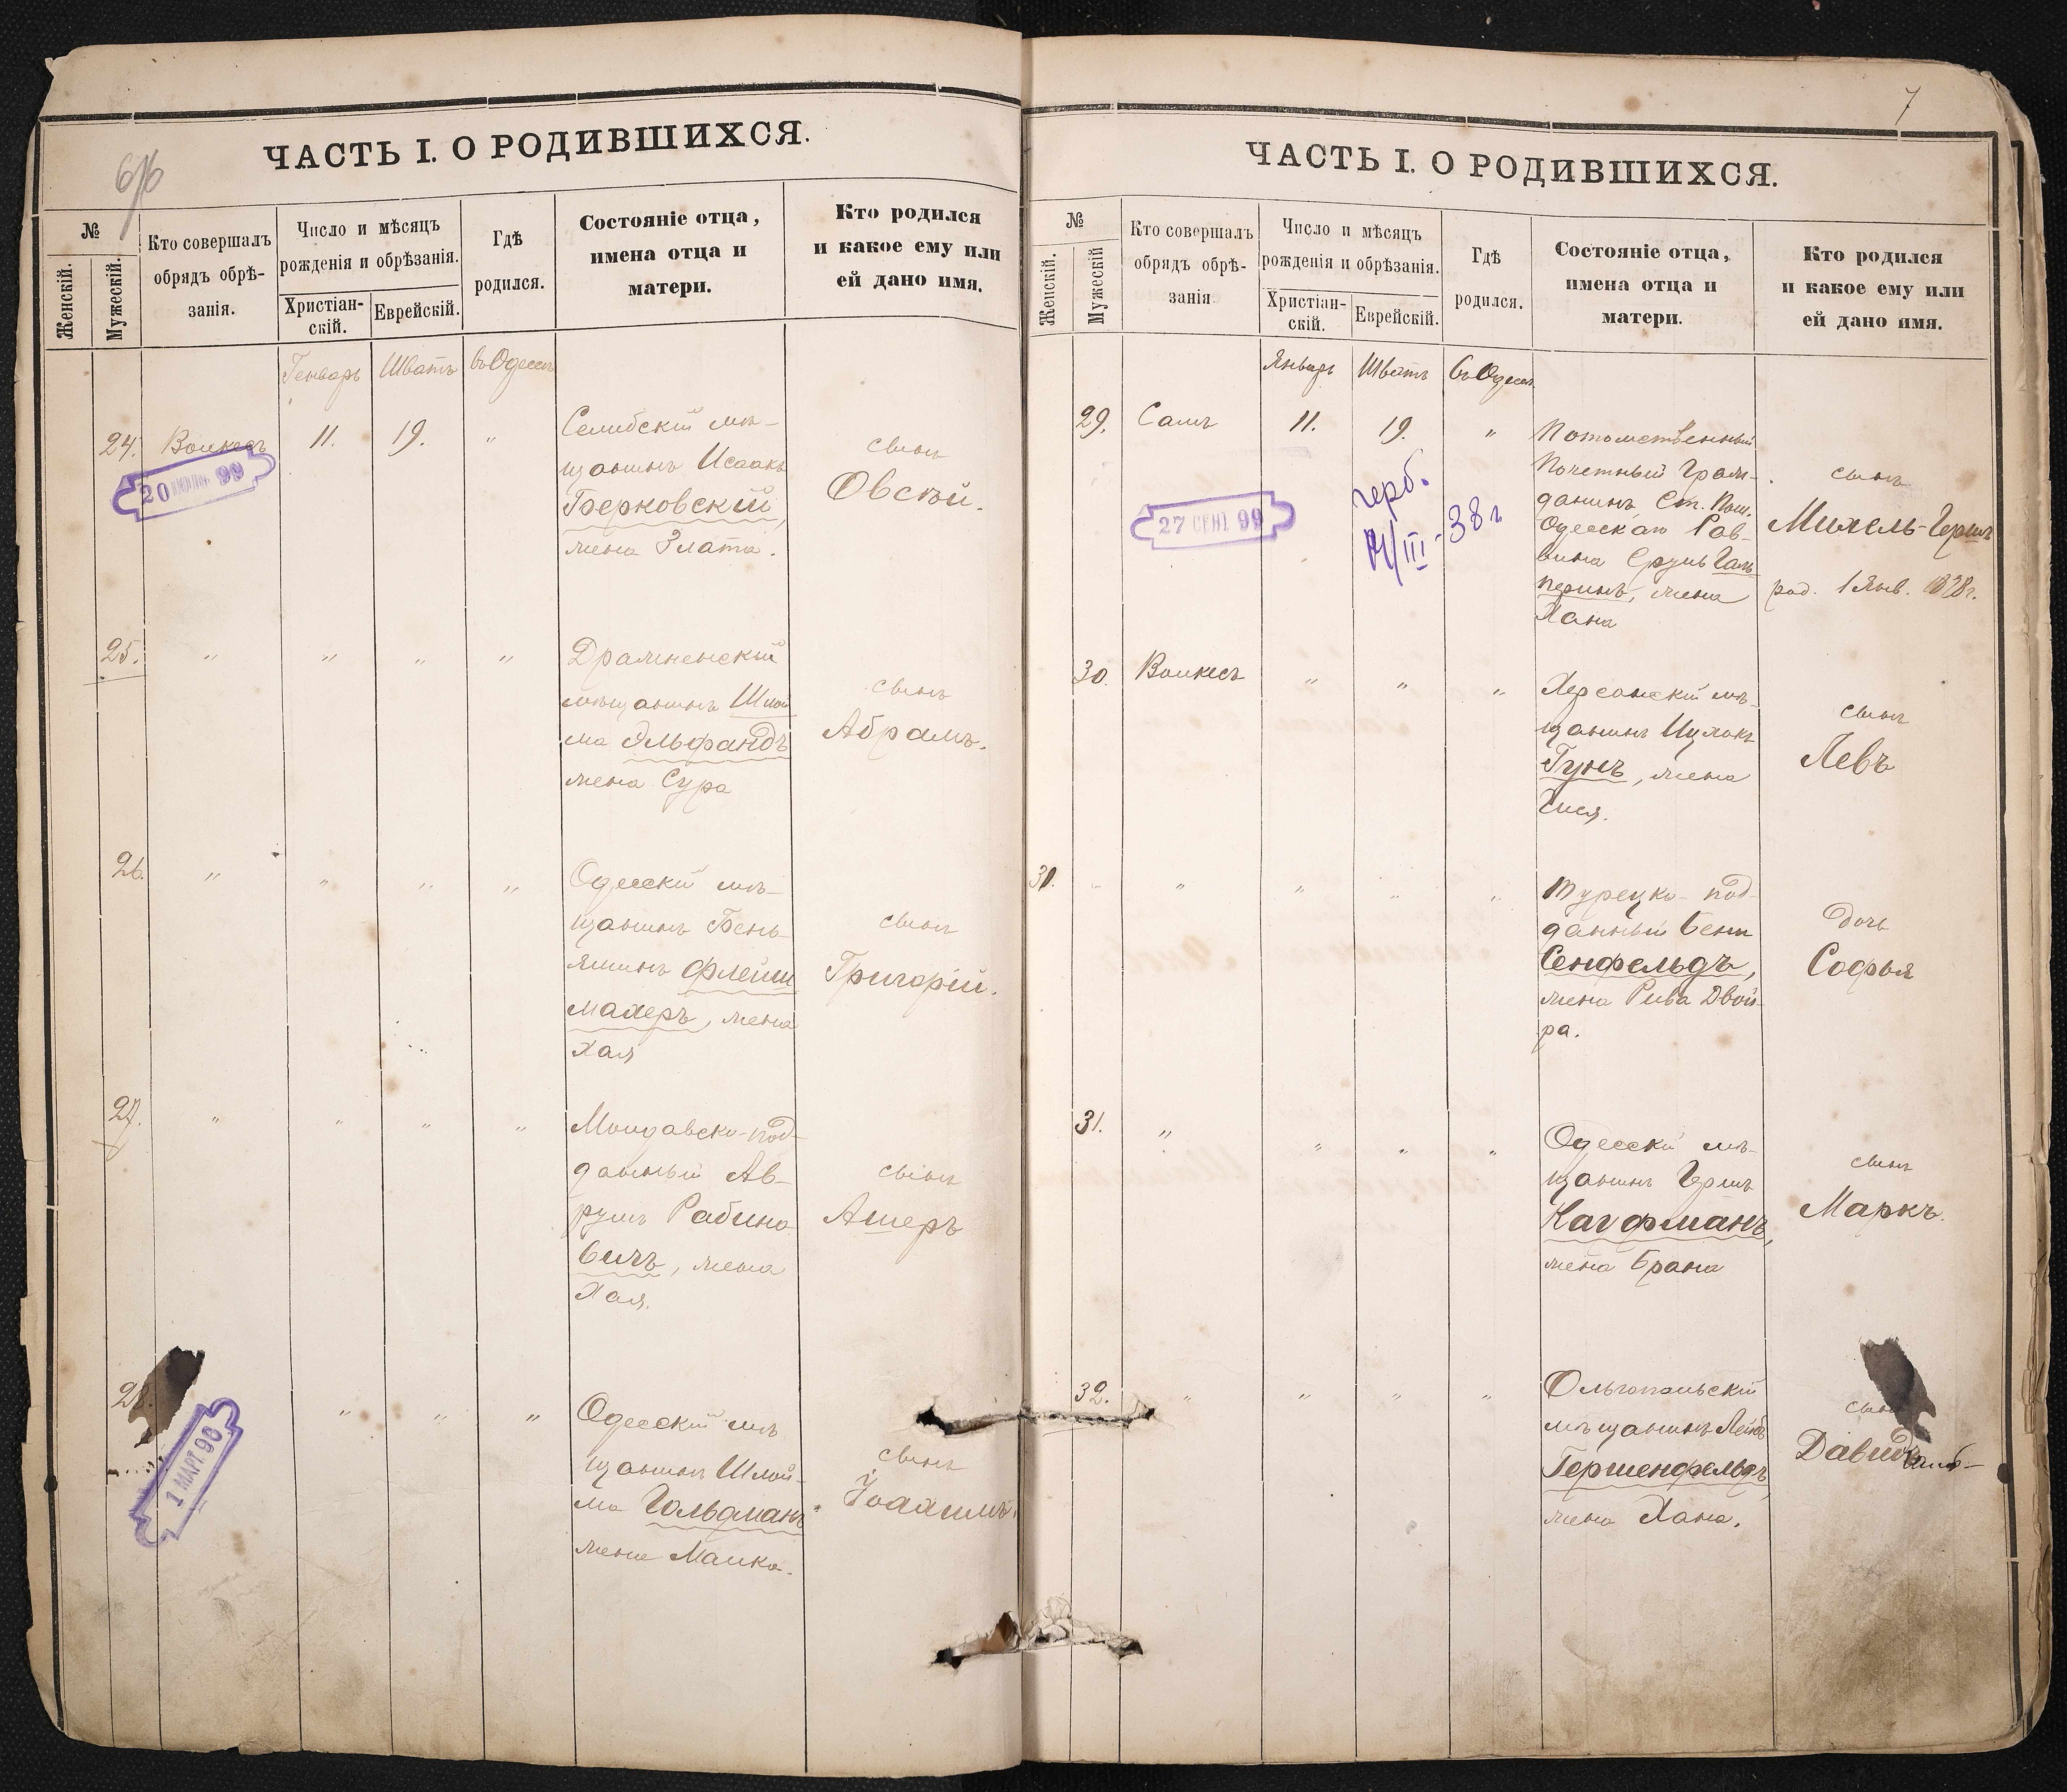 6/6
ЧАСТЬ I. О РОДИВШИХСЯ.
№
Женскій.
Мужескій.
Кто совершалъ
обрядъ обрѣ-
занія.
Число и мѣсяцъ
рожденія и обрѣзанія.
Христіан-
скій.
Еврейскій.
Гдѣ
родился.
Состояніе отца,
имена отца и
матери.
Кто родился
и какое ему или
ей дано имя.
Генварь Шватъ въ Одессѣ
24. Волкесъ 11. 19. "
20 99
мѣ-
щанинъ Исаакъ
Берковскій,
жена Злата.
сынъ
Овсѣй.
25. " " " "
мѣщанинъ Шлой
ма Эльфандъ
жена Сура
сынъ
Абрамъ.
26. " " " "
Одесскій мѣ-
щанинъ Бень-
яминъ Флейш
махеръ, жена
Хая
сынъ
Григорій.
27. " " " "
Молдавско-под-
данный Ав-
румъ Рабино
вичъ, жена
Хая.
сынъ
Ашеръ
28. " " "
1 МАРТ 90
Одесскій мѣ
щанинъ Шлой-
ма Гольдманъ
жена Малка.
сынъ
Іоахимъ.
7
ЧАСТЬ I. О РОДИВШИХСЯ.
№
Женскій.
Мужескій
Кто совершалъ
обрядъ обрѣ-
занія
Число и мѣсяцъ
рожденія и обрѣзанія.
Христіан-
скій.
Еврейскій.
Гдѣ
родился.
Состояніе отца,
имена отца и
матери.
Кто родился
и какое ему или
ей дано имя.
Январь Шватъ въ Одессѣ
29. Самъ 11. 19. "
27 СЕНТ 99
герб.
/III-38 г
Потомственный
Почетный Граж-
данинъ, Ст. Пом.
Одесскаго Рав-
вина Сруль Галь
перинъ, жена
Хана
сынъ
Михель-Гершъ
род. 1 Янв. 1878 г.
30. Волкесъ " " "
Херсонскій мѣ-
щанинъ Ицхокъ
Гунъ, жена
сынъ
Левъ
31. " " " " "
Турецко-под-
данный Бени
Сенфельдъ,
жена Рива Двой-
ра.
дочь
Софья
31. " " " "
Одесскій мѣ-
щанинъ Гершъ
Кауфманъ,
жена Брана
сынъ
Маркъ.
32. " " " "
Ольгопольскій
мѣщанинъ Лейб
Гершенфельдъ,
жена Хана.
сынъ
Давидъ